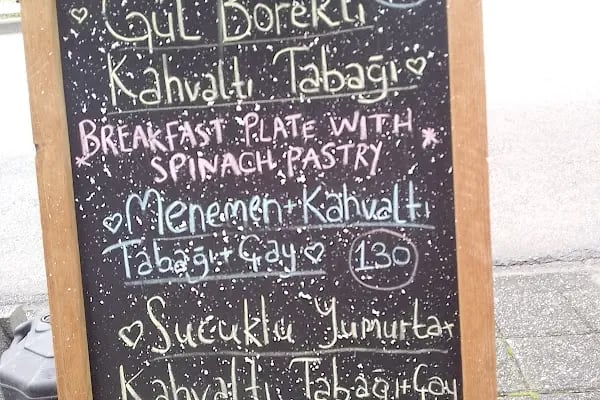 ♡ Gül Börekli
Kahvaltı Tabağı ♡
BREAKFAST PLATE WITH
* SPINACH PASTRY *
♡ Menemen+Kahvaltı
Tabağı+Çay ♡ 130
♡ Sucuklu Yumurta+
Kahvaltı Tabağı+Çay